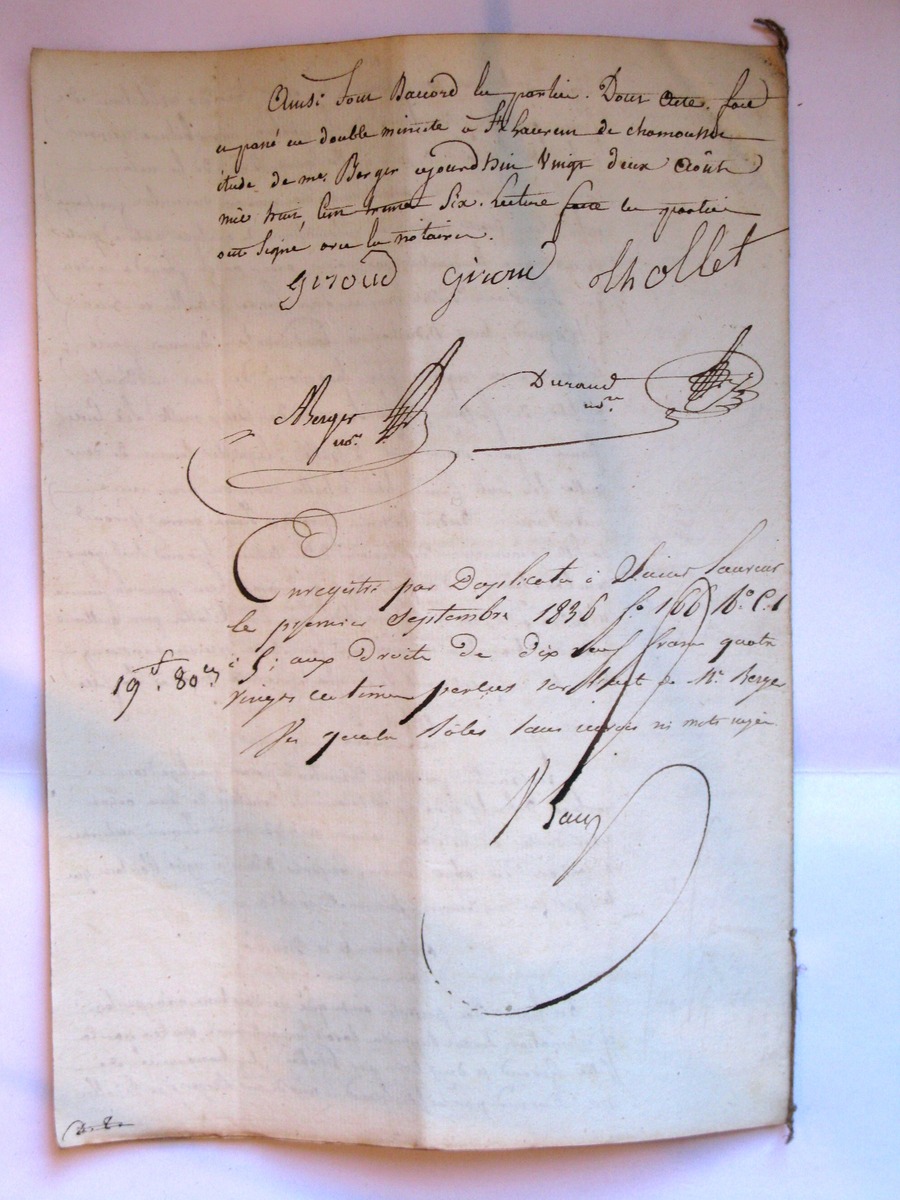 Ainsi sont d'accord les parties. Dont acte. fait
et passé en double minute à St laurent de chamousset
étude de me. Berger aujourd'hui vingt deux août
mil huit cent trente six. Lecture faite les parties
ont signé avec les notaires.
Giroud Giroud Thollet
Berger Durand
nore. nore.
Enregistré par Duplicata à Saint Laurent
le premier Septembre 1836 fo. 166 Vo. C. 1
à 5; aux droits de dix neuf francs quatre
19f. 80c
vingt centimes perçus sur minute de Me. Berger
quatre rôles sans renvois ni mots rayés